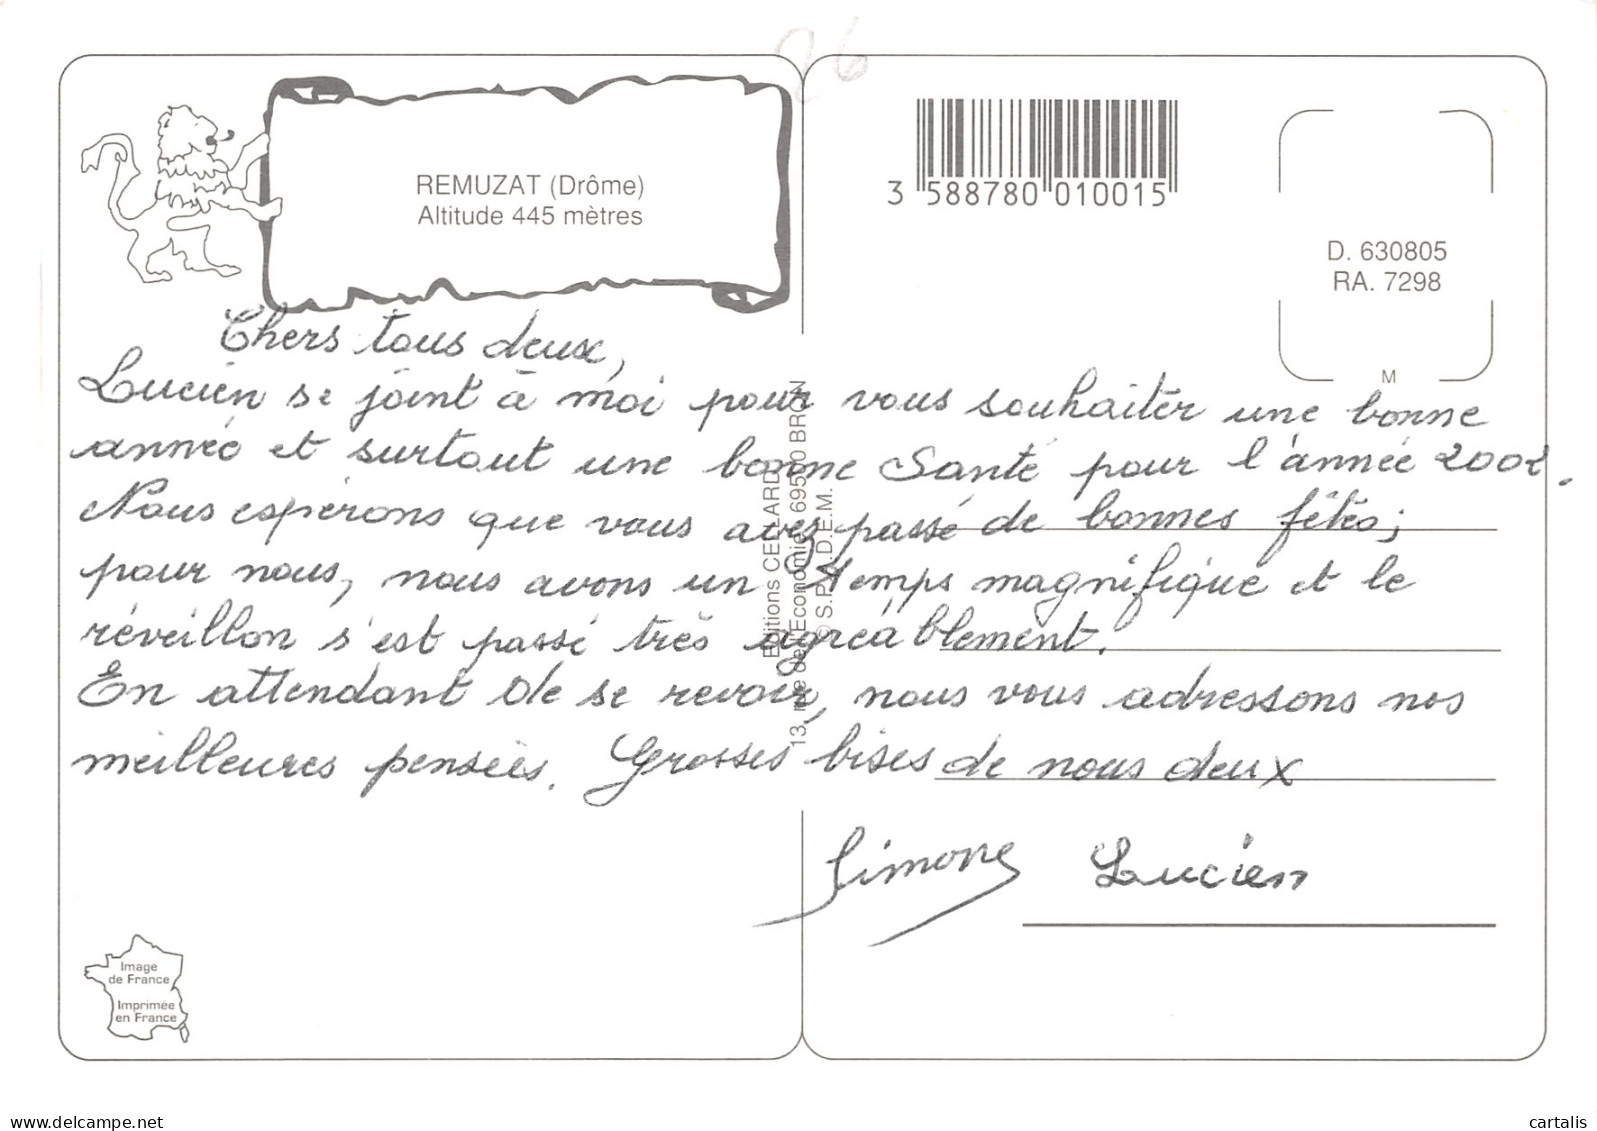 26
REMUZAT (Drôme)
Altitude 445 mètres
3 588780 010015
D. 630805
RA. 7298
M
Chers tous deux,
Lucien se joint à moi pour vous souhaiter une bonne
année et surtout une bonne Santé pour l'année 2002.
Nous espérons que vous avez passé de bonnes fêtes;
pour nous, nous avons un temps magnifique et le
réveillon s'est passé très agréablement.
En attendant de se revoir, nous vous adressons nos
meilleures pensées. Grosses bises de nous deux
Simone Lucien
Editions CELLARD
13, rue de l'Economie, 69500 BRON
© S.P.A.D.E.M.
Image
de France
Imprimée
en France
cartalis
delcampe.net